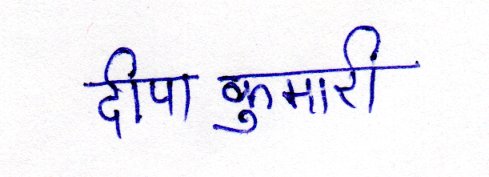 दीपा कुमारी